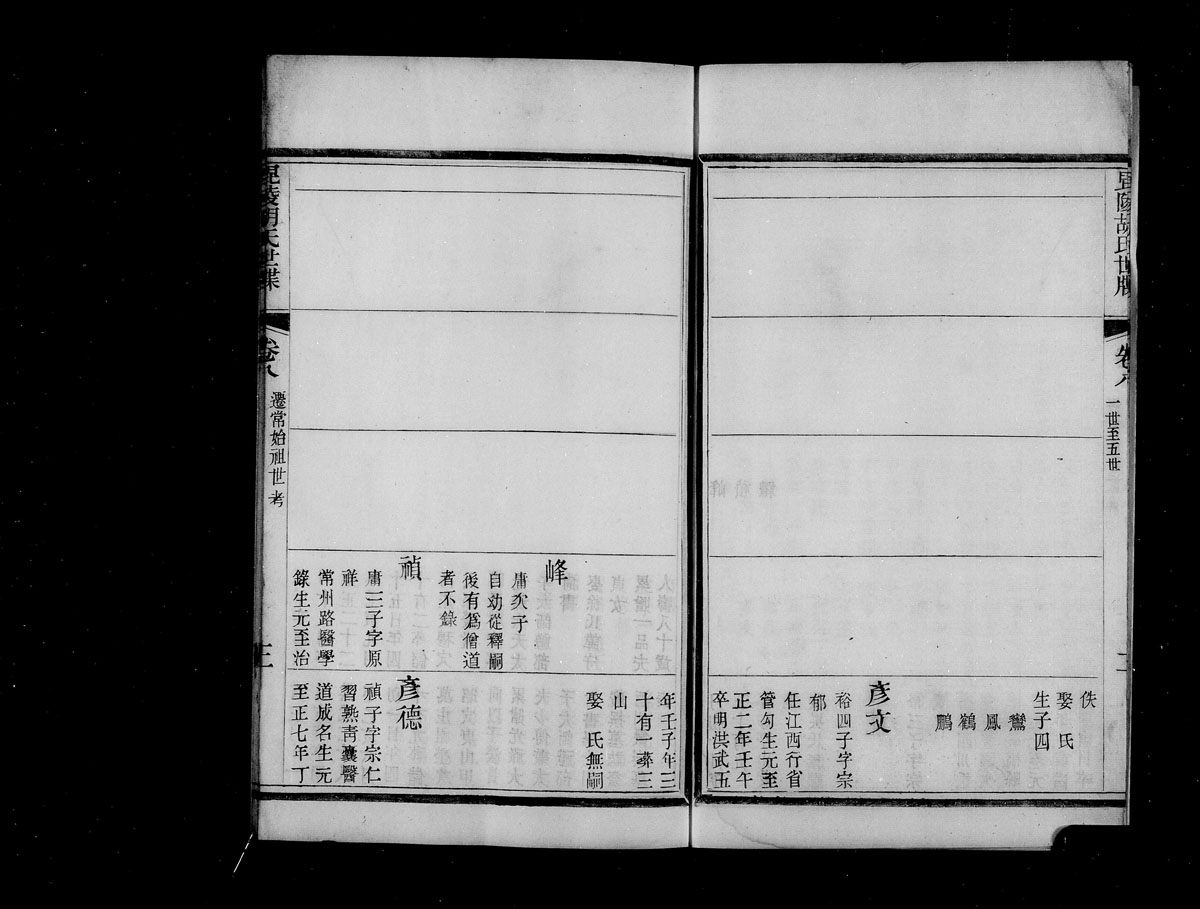 毘陵胡氏世牒
卷八
一世至五世
佚
娶氏
生子四
鸞
鳳
鶴
鵬
彥文
裕四子字宗
郁
任江西行省
管勾生元至
正二年壬午
卒明洪武五
年壬子年三
十有一葬三
山
娶 氏無嗣
峰
庸次子
自幼從釋嗣
後有爲僧道
者不錄
禎
庸三子字原
祥
常州路醫學
錄生元至治
彥德
禎子字宗仁
習熟靑囊醫
道成名生元
至正七年丁
毘陵胡氏世牒
卷八
遷常始祖世考